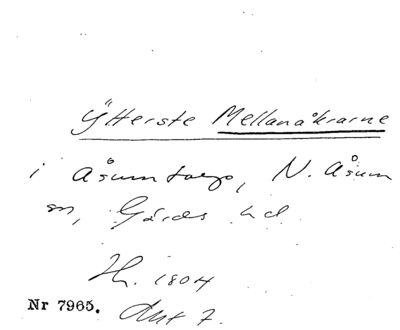 Ytterste Mellanåkrarne
i Åsumtorp, N. Åsum
sn, Gärds hd
H. 1804
Nr 7965. Akt 7.